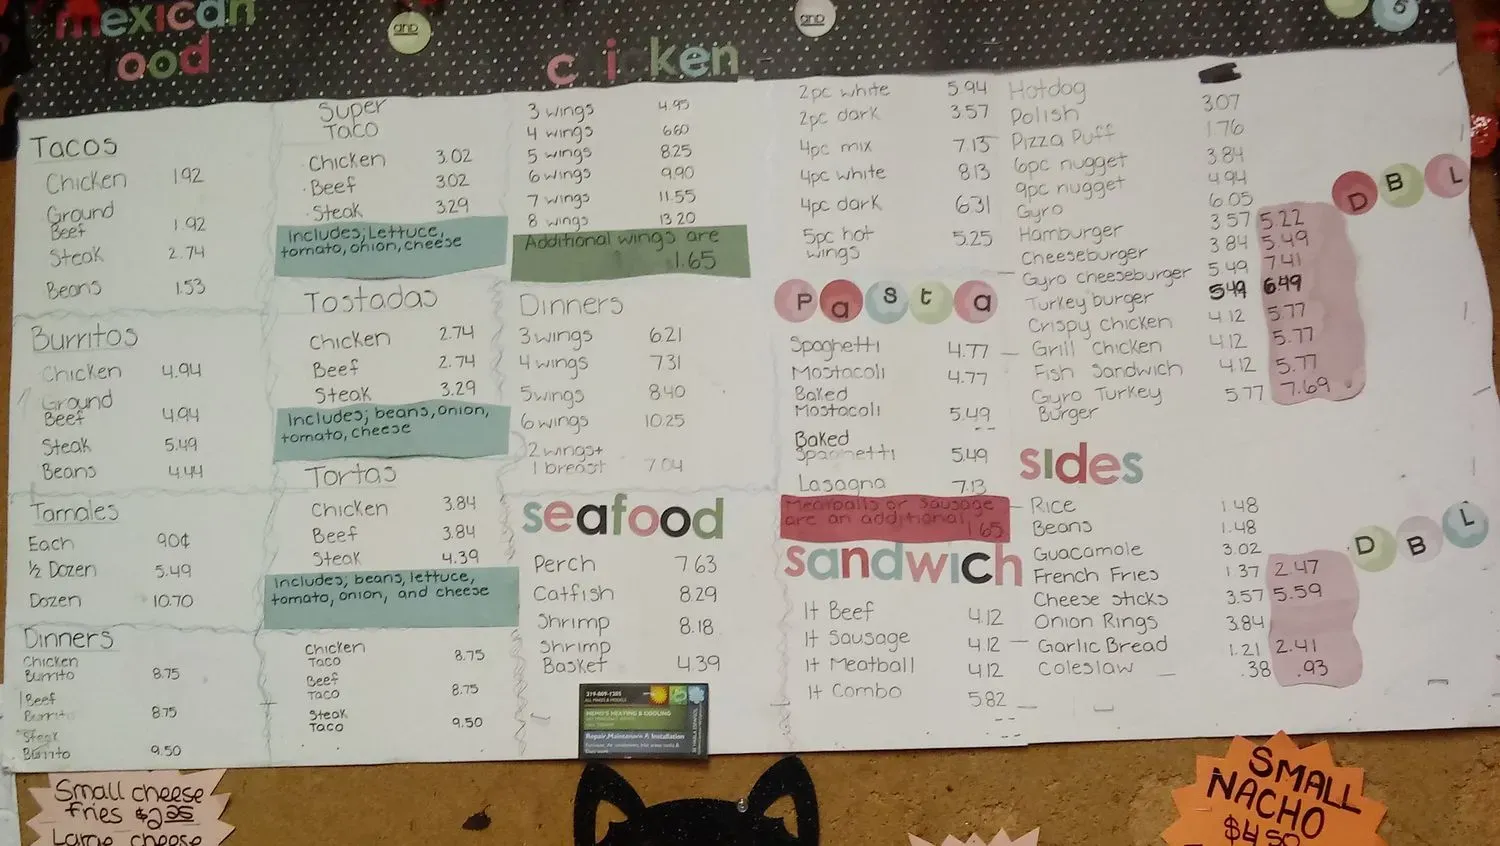 mexican
ood
AND
AND
5
Tacos
Chicken 1.92
Ground
Beef 1.92
Steak 2.74
Beans 1.53
Burritos
Chicken 4.94
Ground
Beef 4.94
Steak 5.49
Beans 4.44
Tamales
Each 90¢
½ Dozen 5.49
Dozen 10.70
Dinners
Chicken
Burrito 8.75
Beef
Burrito 8.75
Steak
Burrito 9.50
Super
Taco
Chicken 3.02
Beef 3.02
Steak 3.29
Includes; Lettuce,
tomato, onion, cheese
Tostadas
Chicken 2.74
Beef 2.74
Steak 3.29
Includes; beans, onion,
tomato, cheese
Tortas
Chicken 3.84
Beef 3.84
Steak 4.39
Includes; beans, lettuce,
tomato, onion, and cheese
Chicken
Taco 8.75
Beef
Taco 8.75
Steak
Taco 9.50
c icken
3 wings 4.95
4 wings 6.60
5 wings 8.25
6 wings 9.90
7 wings 11.55
8 wings 13.20
Additional wings are
1.65
Dinners
3 wings 6.21
4 wings 7.31
5 wings 8.40
6 wings 10.25
2 wings+
1 breast 7.04
seafood
Perch 7.63
Catfish 8.29
Shrimp 8.18
Shrimp
Basket 4.39
319-009-1205
HEATING & COOLING
Repair, Maintenance & Installation
2pc white 5.94
2pc dark 3.57
4pc mix 7.13
4pc white 8.13
4pc dark 6.31
5pc hot 5.25
wings
Pasta
Spaghetti 4.77
Mostacoli 4.77
Baked
Mostacoli 5.49
Baked
Spaghetti 5.49
Lasagna 7.13
Meatballs or Sausage
are an additional
1.65
sandwich
It Beef 4.12
It Sausage 4.12
It Meatball 4.12
It Combo 5.82
Hotdog
Polish 3.07
Pizza Puff 1.76
6pc nugget 3.84
9pc nugget 4.94
Gyro 6.05
DBL
Hamburger 3.57 5.22
Cheeseburger 3.84 5.49
Gyro cheeseburger 5.49 7.41
Turkey burger 5.49 6.49
Crispy Chicken 4.12 5.77
Grill Chicken 4.12 5.77
Fish Sandwich 4.12 5.77
Gyro Turkey 5.77 7.69
Burger
sides
Rice 1.48
Beans 1.48
Guacamole 3.02
DBL
French Fries 1.37 2.47
Cheese sticks 3.57 5.59
Onion Rings 3.84
Garlic Bread 1.21 2.41
Coleslaw .38 .93
Small cheese
fries $2.25
Large cheese
SMALL
NACHO
$4.50